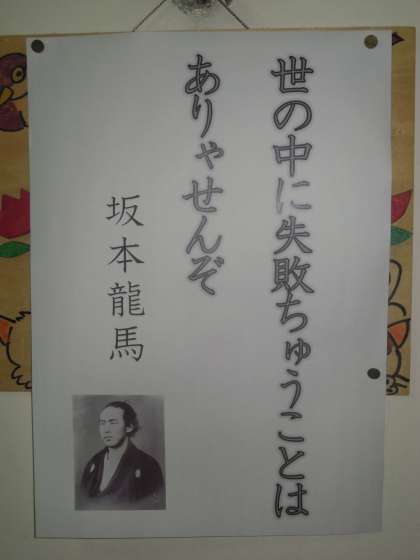 世の中に失敗ちゅうことは
ありゃせんぞ
坂本龍馬